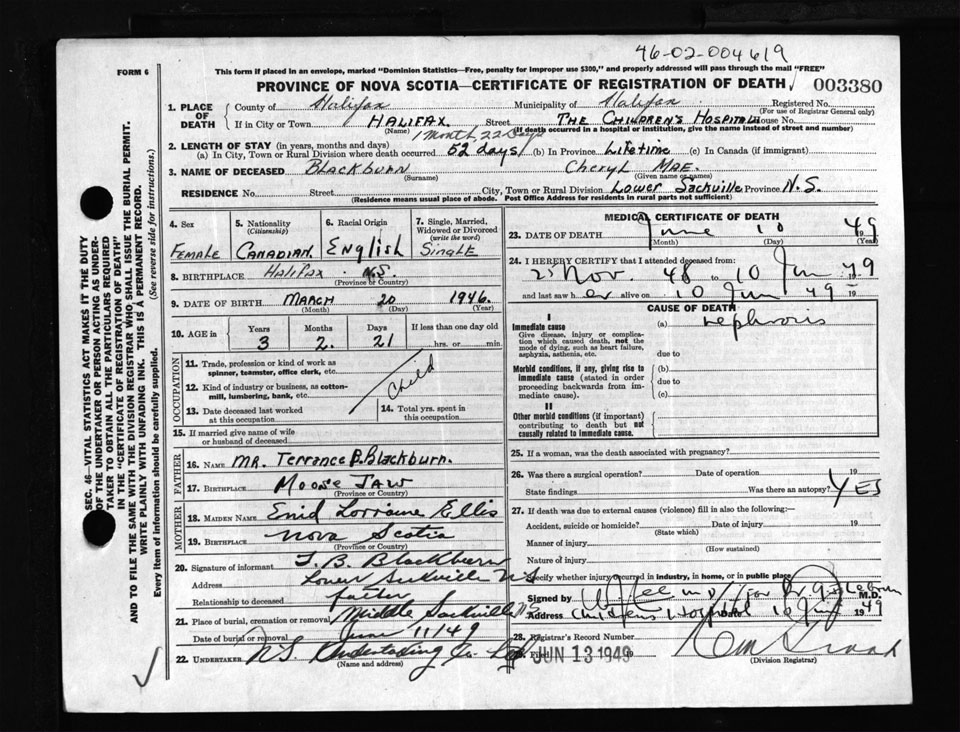 46-02-004619
FORM 6
This form if placed in an envelope, marked "Dominion Statistics—Free, penalty for improper use $300," and properly addressed will pass through the mail "FREE"
PROVINCE OF NOVA SCOTIA—CERTIFICATE OF REGISTRATION OF DEATH
003380
1. PLACE OF DEATH
County of Halifax Municipality of Halifax Registered No.
(For use of Registrar General Only)
If in City or Town HALIFAX. Street THE CHILDREN'S HOSPITAL House No.
(Name) If death occurred in a hospital or institution, give the name instead of street and number)
1 Month 22 Days
2. LENGTH OF STAY (in years, months and days)
(a) In City, Town or Rural Division where death occurred 52 days (b) In Province Lifetime (c) In Canada (if immigrant)
3. NAME OF DECEASED Blackburn Cheryl MAE.
(Surname) (Given name or names)
RESIDENCE No. Street City, Town or Rural Division Lower Sackville Province N.S.
(Residence means usual place of abode. Post Office Address for residents in rural parts not sufficient)
4. Sex
Female
5. Nationality
(Citizenship)
Canadian
6. Racial Origin
English
7. Single, Married, Widowed or Divorced
(write the word)
Single
8. BIRTHPLACE Halifax N.S.
(Province or Country)
9. DATE OF BIRTH March 20 1946.
(Month) (Day) (Year)
10. AGE in Years Months Days If less than one day old
3 2. 21 hrs. or min.
OCCUPATION
11. Trade, profession or kind of work as
spinner, teamster, office clerk, etc.
12. Kind of industry or business, as cotton-
mill, lumbering, bank, etc.
Child
13. Date deceased last worked
at this occupation
14. Total yrs. spent in
this occupation
15. If married give name of wife
or husband of deceased
FATHER
16. NAME MR. Terrance B. Blackburn.
17. BIRTHPLACE Moose Jaw
(Province or Country)
MOTHER
18. MAIDEN NAME Enid Lorraine Ellis
19. BIRTHPLACE Nova Scotia
(Province or Country)
20. Signature of informant T. B. Blackburn
Address Lower Sackville NS
Relationship to deceased father
21. Place of burial, cremation or removal Middle Sackville NS
Date of burial or removal June 11/49
22. UNDERTAKER NS Undertaking Co. Ltd
(Name and address)
MEDICAL CERTIFICATE OF DEATH
23. DATE OF DEATH June 10 1949
(Month) (Day) (Year)
24. I HEREBY CERTIFY that I attended deceased from:
2 Nov. 48 to 10 Jun 49
and last saw her alive on 10 Jun 49 19
CAUSE OF DEATH
I
Immediate cause (a) nephrosis
Give disease, injury or complica-
tion which caused death, not the
mode of dying, such as heart failure,
asphyxia, asthenia, etc. due to
Morbid conditions, if any, giving rise to (b)
immediate cause (stated in order due to
proceeding backwards from im-
mediate cause). (c)
II
Other morbid conditions (if important)
contributing to death but not
causally related to immediate cause.
25. If a woman, was the death associated with pregnancy?
26. Was there a surgical operation? Date of operation 19
State findings Was there an autopsy? YES
27. If death was due to external causes (violence) fill in also the following:—
Accident, suicide or homicide? Date of injury 19
(State which)
Manner of injury
(How sustained)
Nature of injury
Specify whether injury occurred in industry, in home, or in public place
Signed by for Dr. M.D.
Address Children's Hospital 10 Jun 1949
28. Registrar's Record Number
Filed JUN 13 1949 19
(Division Registrar)
SEC. 46—VITAL STATISTICS ACT MAKES IT THE DUTY
OF THE UNDERTAKER OR PERSON ACTING AS UNDER-
TAKER TO OBTAIN ALL THE PARTICULARS REQUIRED
IN THE "CERTIFICATE OF REGISTRATION OF DEATH"
AND TO FILE THE SAME WITH THE DIVISION REGISTRAR WHO SHALL ISSUE THE BURIAL PERMIT.
WRITE PLAINLY WITH UNFADING INK. THIS IS A PERMANENT RECORD.
Every item of information should be carefully supplied. (See reverse side for instructions.)